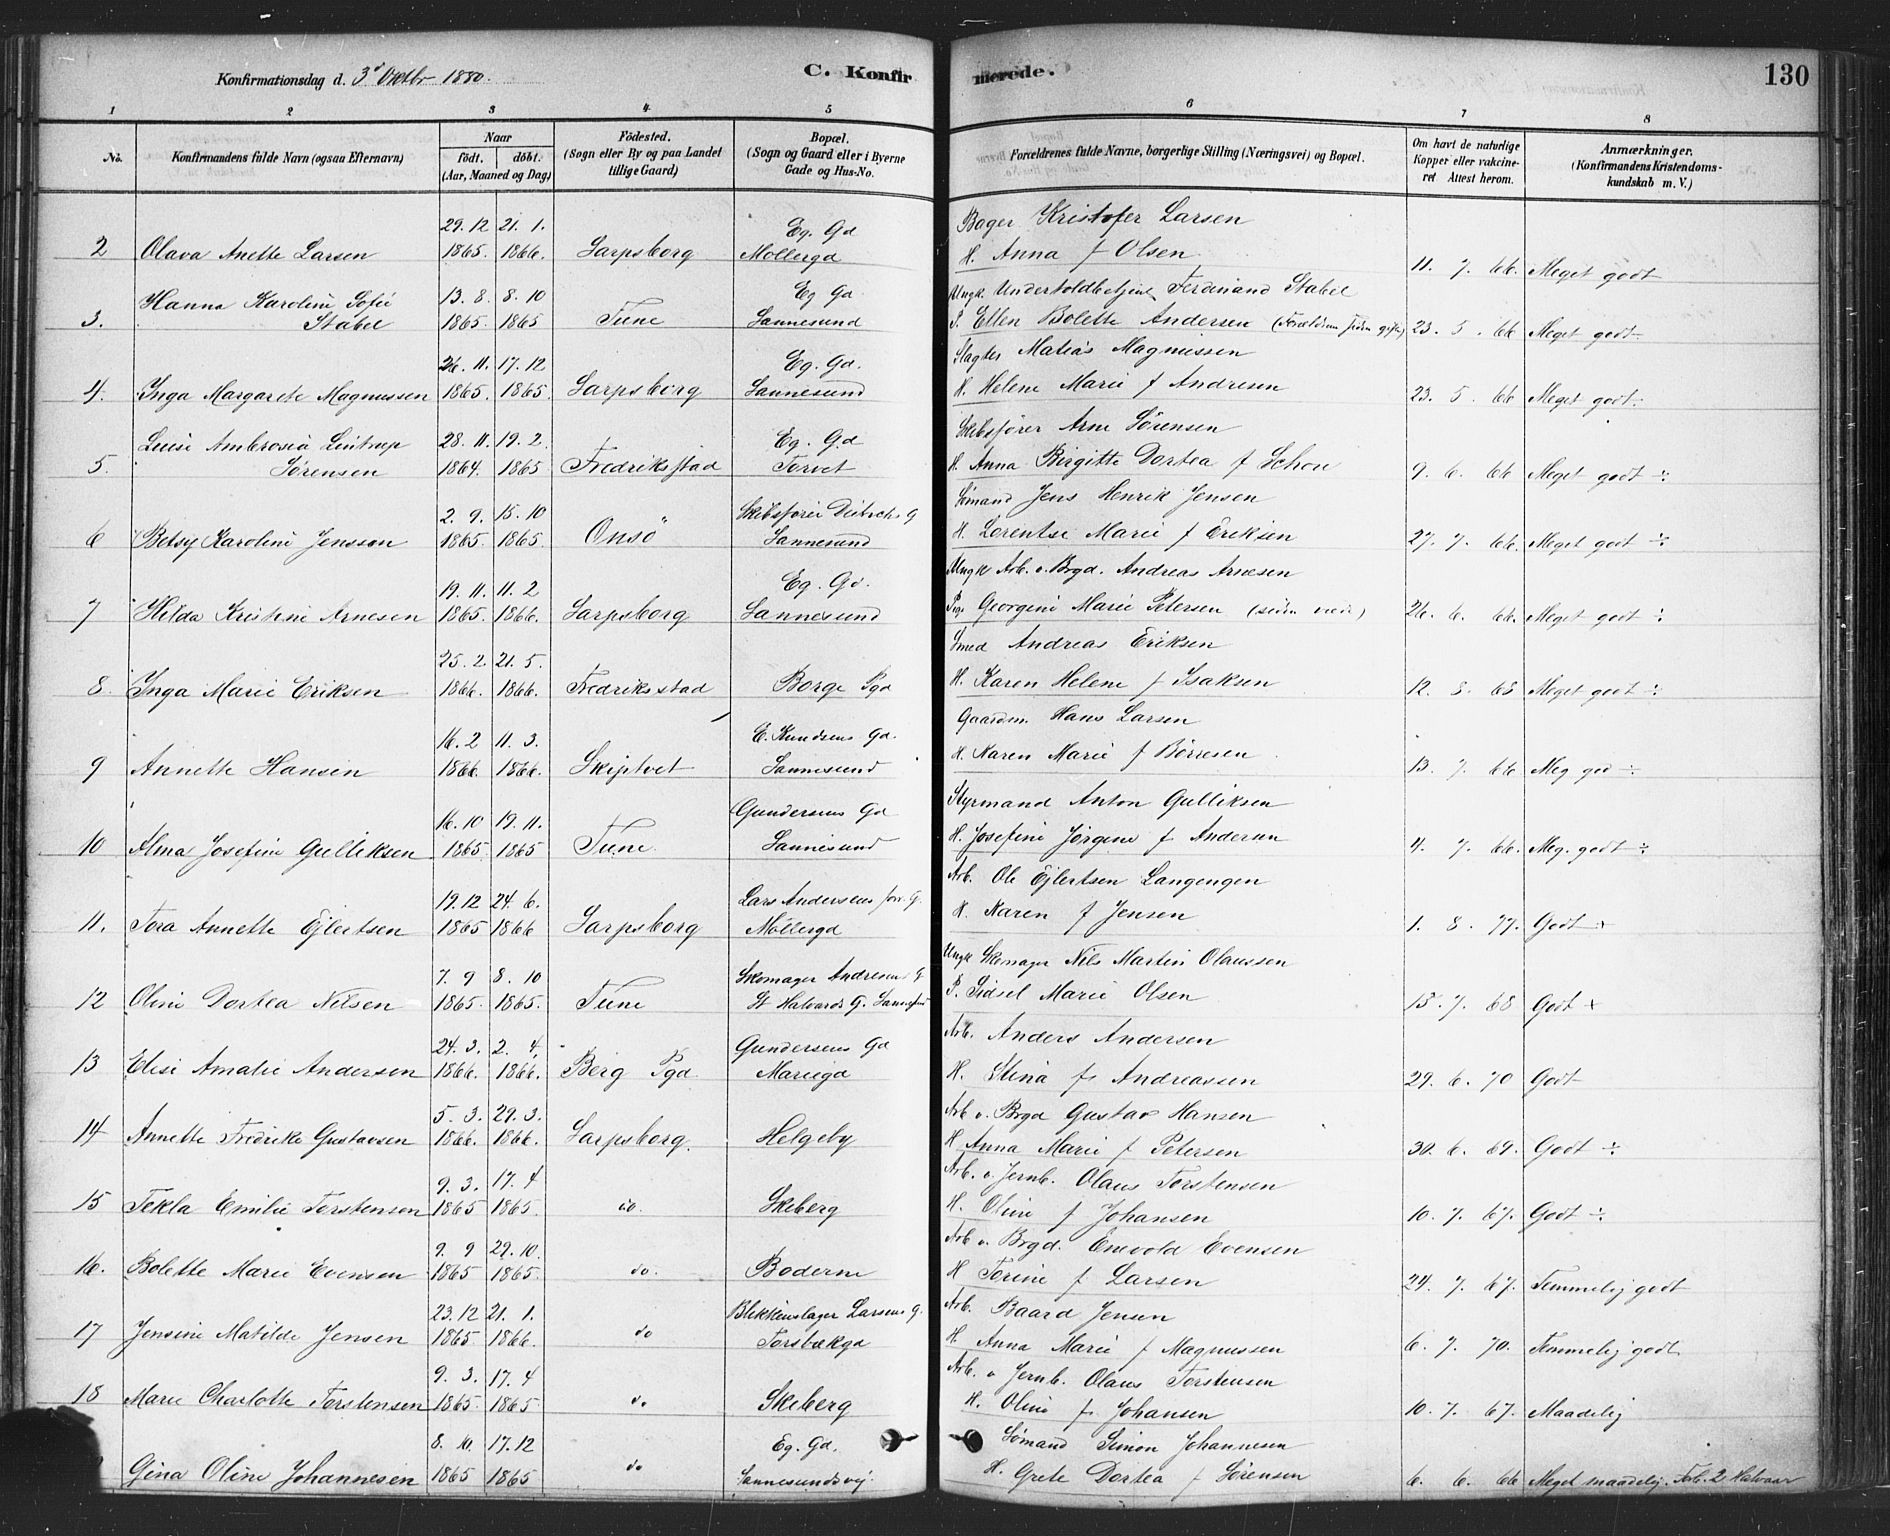 Konfirmationsdag d. 3d Oktbr 1880.
C. Konfirmerede.
130
1 2 3 4 5 6 7 8
No.
Konfirmandens fulde Navn (ogsaa Efternavn)
Naar
födt. döbt.
(Aar, Maaned og Dag)
Födested.
(Sogn eller By og paa Landet
tillige Gaard)
Bopæl.
(Sogn og Gaard eller i Byerne
Gade og Hus-No.
Forældrenes fulde Navne, borgerlige Stilling (Næringsvei) og Bopæl.
Om havt de naturlige
Kopper eller vakcine-
ret Attest herom.
Anmærkninger.
(Konfirmandens Kristendoms-
kundskab m. V.)
29. 12 21. 1. Eg. Gd Bager Kristofer Larsen
2 Olava Anette Larsen 1865. 1866. Sarpsborg Möllergd H. Anna f Olsen 11. 7. 66. Meget godt
Hanna Karoline Sofie 13. 8. 8. 10 Eg Gd Ungk. Undertoldbetjent Ferdinand Stabel
3. Stabel 1865. 1865 Tune Sannesund P. Ellen Bolette Andersen (Forældrene siden gifte) 23. 5. 66 Meget godt
26. 11. 17. 12 Eg. Gd. Slagter Matias Magnussen
4. Inga Margarete Magnussen 1865. 1865. Sarpsborg Sannesund H. Helene Marie f Andresen 23. 5. 66 Meget godt
Luise Ambrosia Lintrup 28. 11. 19. 2. Eg. Gd Skibsfører Arne Sörensen
5. Sörensen 1864. 1865 Fredriksstad Torvet H. Anna Birgitte Dortea f Schou 9. 6. 66 Meget godt ÷
2. 9. 15. 10 Skibsförer Dietrichs G Sömand Jens Henrik Jensen
6 Betsy Karoline Jensson 1865. 1865. Onsö Sannesund H. Lorentse Marie f Eriksen 27. 7. 66. Meget godt ÷
19. 11. 11. 2 Eg. Gd. Ungk Arb. v. Brgd. Andreas Arnesen
7 Hilda Kristine Arnesen 1865. 1866. Sarpsborg Sannesund Pige Georgine Marie Petersen (siden viede) 26. 6. 66. Meget godt ÷
25. 2. 21. 5. Smed Andreas Eriksen
8. Inga Marie Eriksen 1866. 1866. Fredriksstad Borge Pgd H. Karen Helene f Isaksen 12. 8. 68 Meget godt ÷
16. 2 11. 3. E. Knudsens Gd. Gaardm. Hans Larsen
9 Annette Hansen 1866. 1866. Skiptvet Sannesund H. Karen Marie f Börresen 13. 7. 66 Meg god ÷
16. 10 19. 11. Gundersens Gd Styrmand Anton Gulliksen
10 Alma Josefine Gulliksen 1865. 1865 Tune. Sannesund H. Josefine Jørgine f Andersen 4. 7. 66. Meg. godt ÷
19. 12 24. 6. Lars Andersens forr. G. Arb. Ole Ejlertsen Langengen
11. Tora Annette Ejlertsen 1865 1866 Sarpsborg Möllergd H. Karen f Jensen 1. 8. 77. Godt +
7. 9 8. 10 Skomager Andresens G Ungk Skomager Nils Martin Olaussen
12 Oline Dortea Nilsen 1865. 1865. Tune St Halvards G. Sannesund P. Sidsel Marie Olsen 15. 7. 68 Godt +
24. 3. 2. 4. Gundersens Gd Arb. Anders Andersen
13 Elise Amalie Andersen 1866. 1866. Berg Pgd Mariegd H. Stina f. Andreassen 29. 6. 70 Godt
5. 3. 29. 3. Arb v. Brgd Gustav Hansen
14 Annette Fredrike Gustavsen 1866. 1866. Sarpsborg. Helgeby H Anna Marie f Petersen 30. 6. 69. Godt ÷
9. 3. 17. 4 Arb. v. Jernb. Olaus Torstensen
15 Tekla Emilie Torstenson 1865 1865. do. Skeberg H. Oline f Johansen 10. 7. 67. Godt ÷
9. 9 29. 10. Arb v. Brgd. Enevold Evensen
16. Bolette Marie Evensen 1865 1865. do. Boderne H Torine f Larsen 24. 7. 67. Temmelig godt
23. 12 21. 1. Blikkenslager Larsens G. Arb. Baard Jensen
17 Jensine Matilde Jensen 1865 1866. do Torsbækgd H. Anna Marie f Magnussen 6. 7. 70. Temmelig godt
9. 3. 17. 4 Arb. v Jernb. Olaus Torstensen
18 Marie Charlotte Torstensen 1865. 1865 do Skeberg H. Oline f. Johansen 10. 7. 67. Maadelig
8. 10. 17. 12 Eg. Gd. Sömand Simon Johannesen
Gina Oline Johannesen 1865 1865 do Sannesundsvej. H. Grete Dortea f Sörensen 6. 6. 66 Meget maadelig. Forb. 2 Halvaar